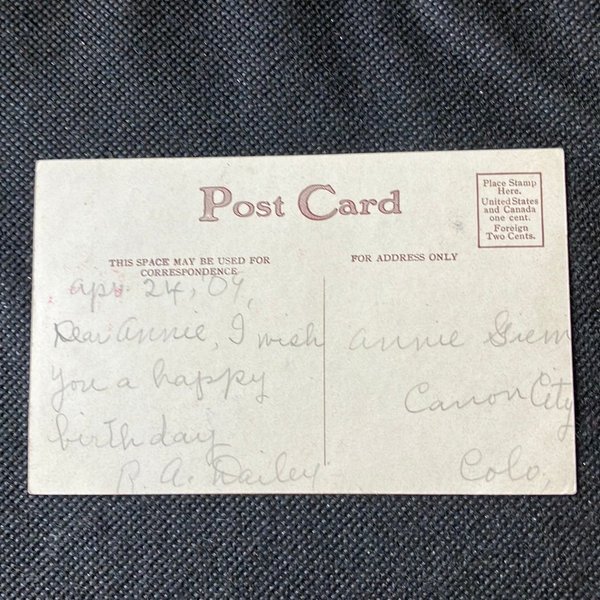 Post Card
Place Stamp
Here.
United States
and Canada
one cent.
Foreign
Two Cents.
THIS SPACE MAY BE USED FOR
CORRESPONDENCE
FOR ADDRESS ONLY
Apr. 24, '09,
Dear Annie, I wish
you a happy
birthday
R. A. Dailey
Annie Giem
Canon City
Colo,